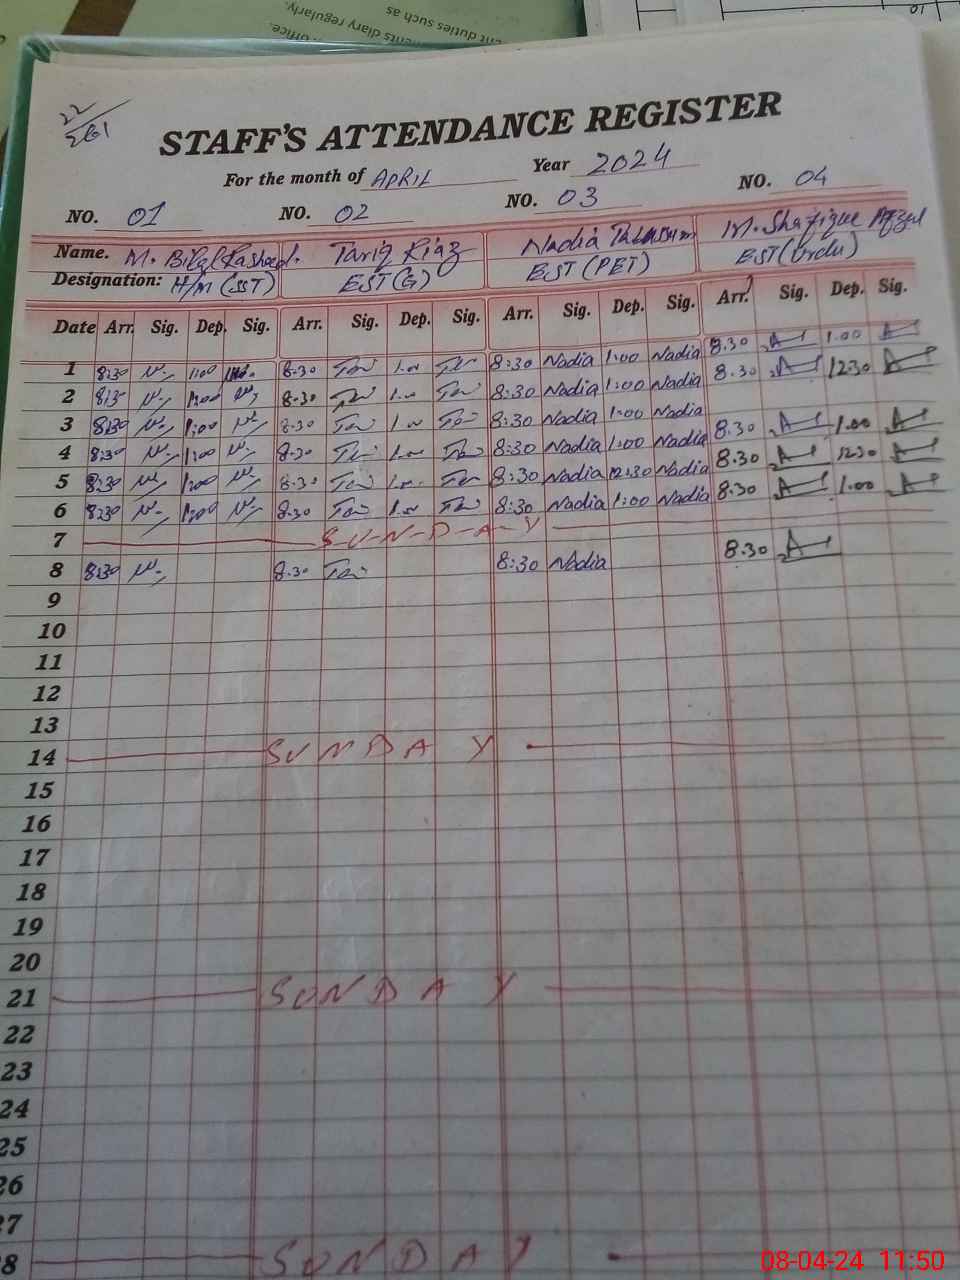 ent duties such as
ments diary regularly.
office.
01
22
STAFF'S ATTENDANCE REGISTER
For the month of APRIL Year 2024
NO. 01 NO. 02 NO. 03 NO. 04
Name. M. Bilal Rasheed. Tariq Riaz Nadia Tabassum M. Shafique Afzal
Designation: H/M (SST) EST(G) EST (PET) EST(Urdu)
Date Arr. Sig. Dep. Sig. Arr. Sig. Dep. Sig. Arr. Sig. Dep. Sig. Arr. Sig. Dep. Sig.
1 8:30 1:00 8.30 1.00 8:30 Nadia 1:00 Nadia 8.30 1.00
2 8:30 1:00 8.30 1.00 8:30 Nadia 1:00 Nadia 8.30 12:30
3 8:30 1:00 8.30 1.00 8:30 Nadia 1:00 Nadia
4 8:30 1:00 8.30 1.00 8:30 Nadia 1:00 Nadia 8.30 1.00
5 8:30 1:00 8.30 1.00 8:30 Nadia 12:30 Nadia 8.30 12:30
6 8:30 1:00 8.30 1.00 8:30 Nadia 1:00 Nadia 8.30 1.00
7 S-U-N-D-A-Y
8 8:30 8.30 8:30 Nadia 8.30
9
10
11
12
13
14 SUNDAY
15
16
17
18
19
20
21 SUNDAY
22
23
24
25
26
27
28 SUNDAY
08-04-24 11:50